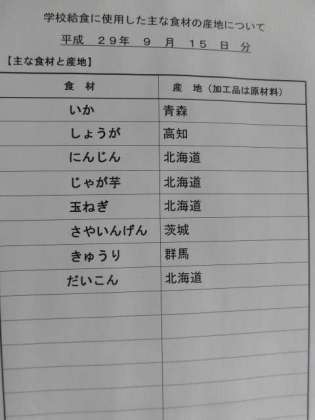 学校給食に使用した主な食材の産地について
平成 29年 9 月 15 日 分
【主な食材と産地】
食 材 産 地（加工品は原材料）
いか 青森
しょうが 高知
にんじん 北海道
じゃが芋 北海道
玉ねぎ 北海道
さやいんげん 茨城
きゅうり 群馬
だいこん 北海道